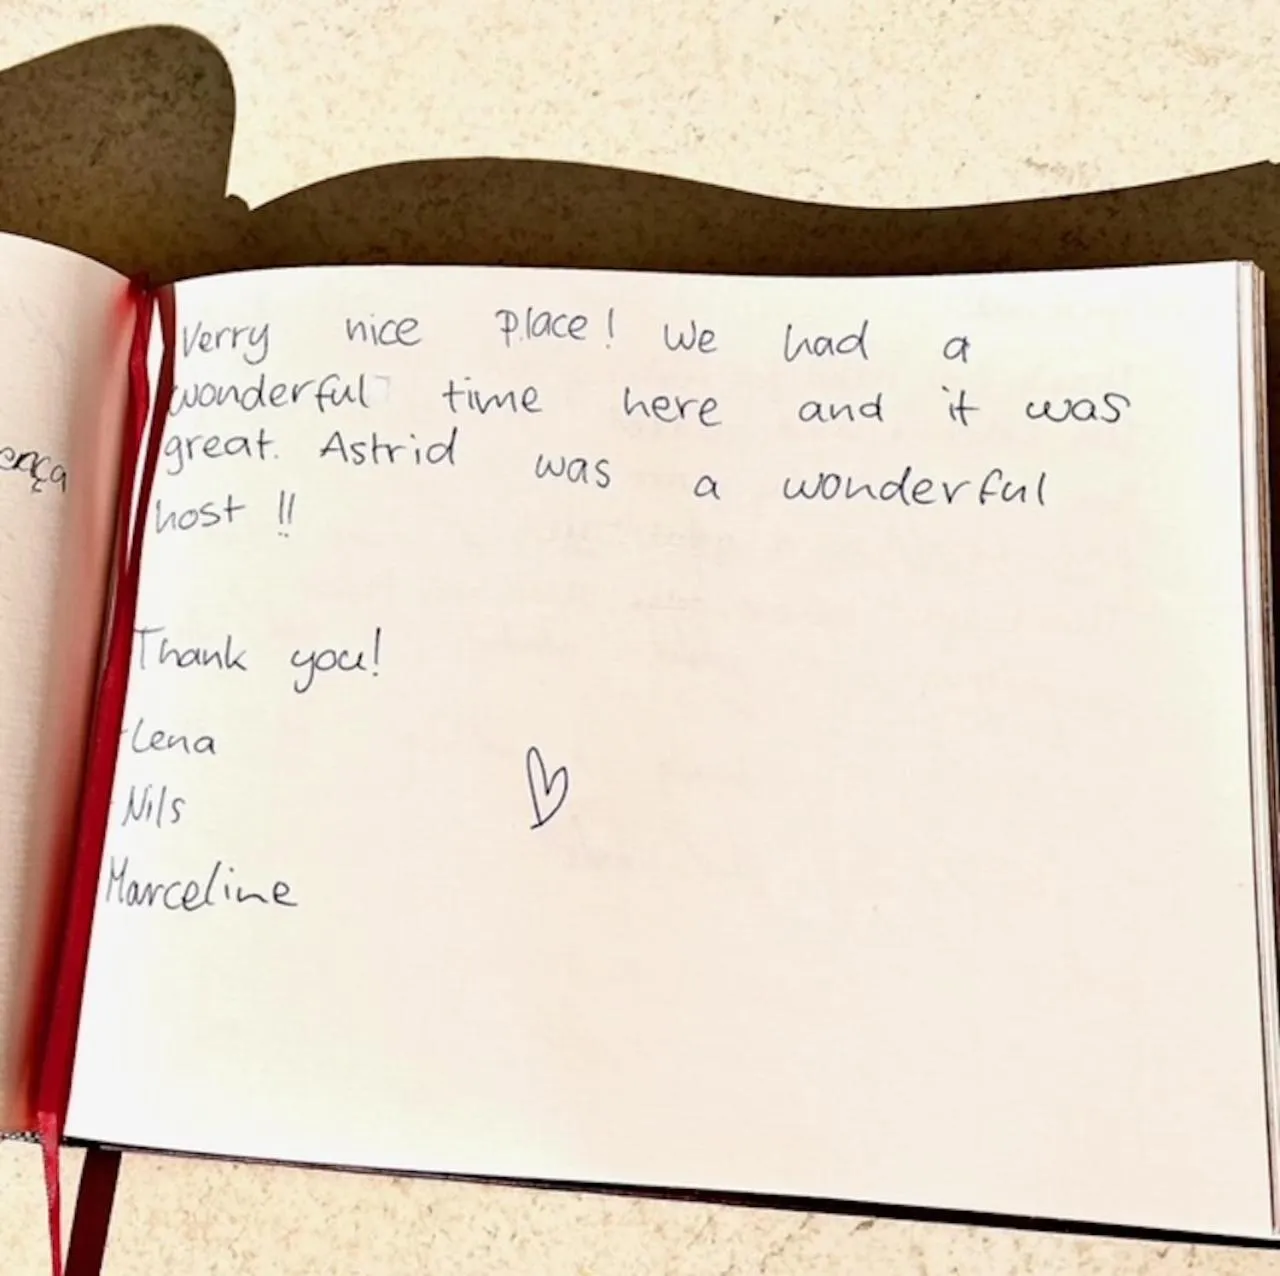 Verry nice place! We had a
wonderful time here and it was
great. Astrid was a wonderful
host !!
Thank you!
-Lena
-Nils
Marceline